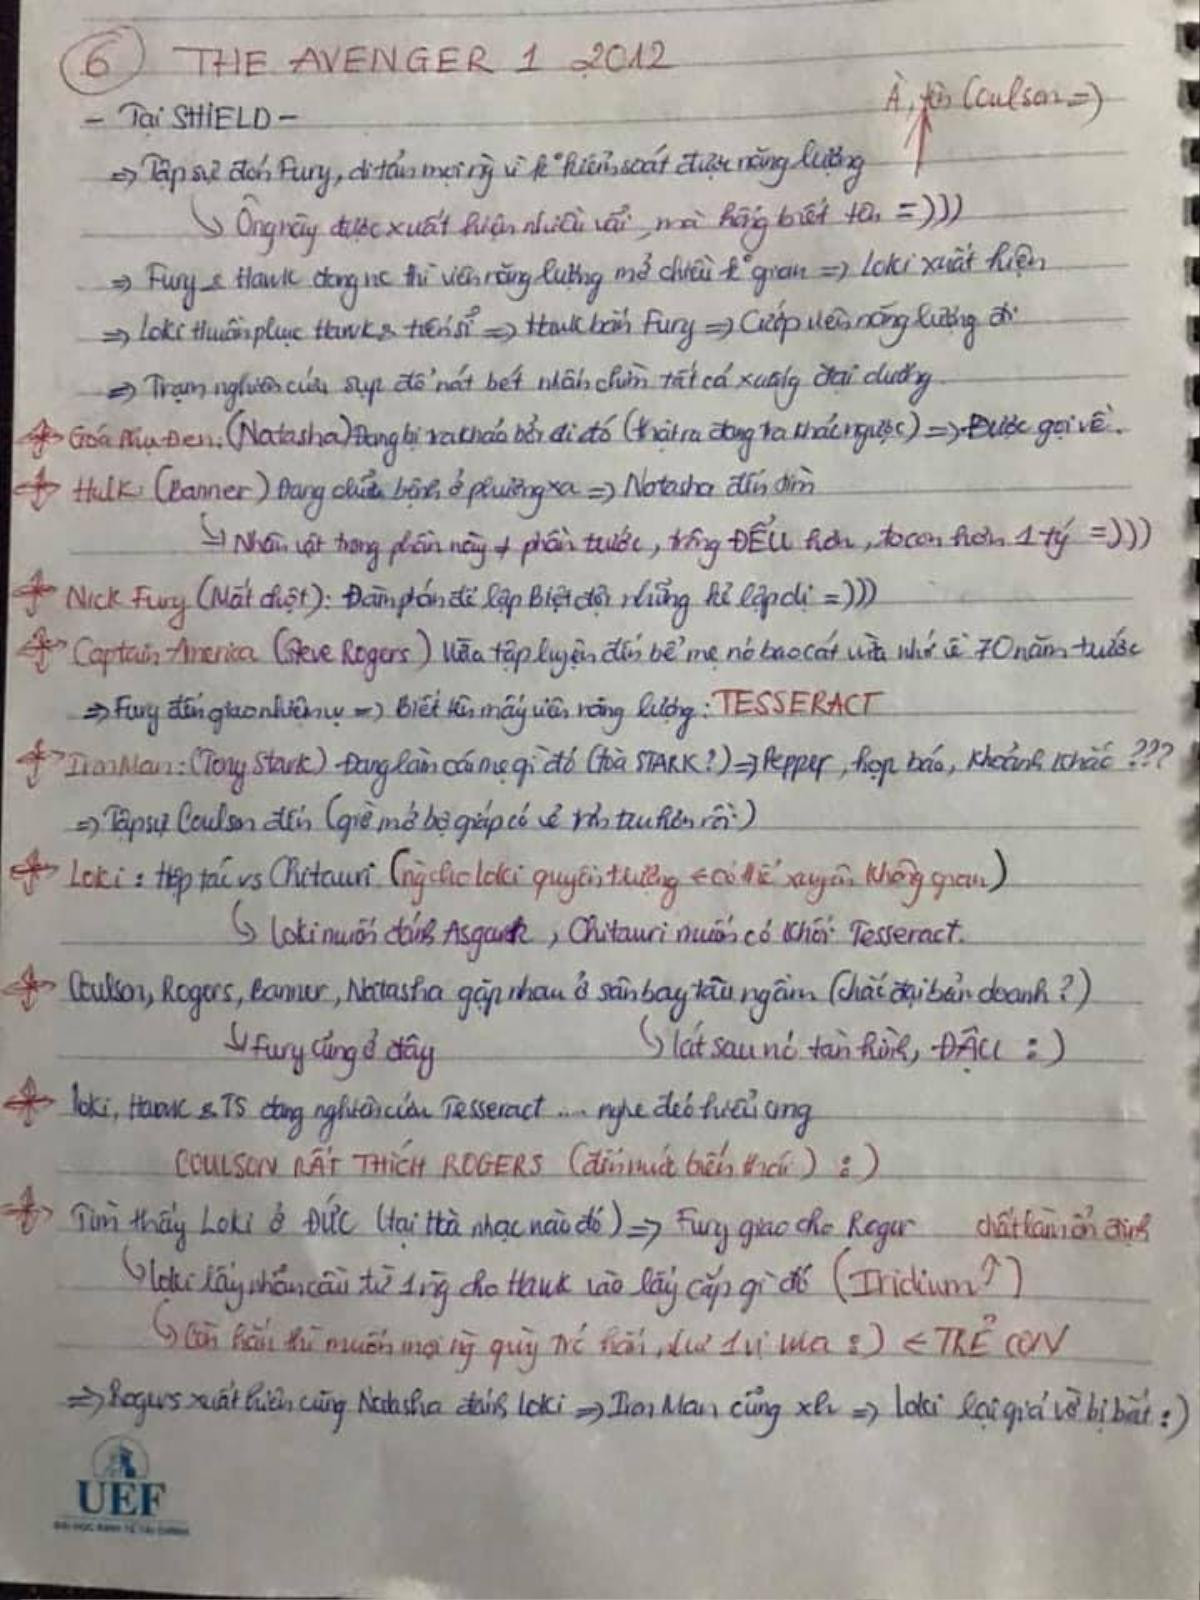 6 THE AVENGER 1 2012
À, tên Coulson =)
- Tại SHIELD -
=> Tập sự đón Fury, di tản mọi ng vì k° kiểm soát được năng lượng
↳ Ông này được xuất hiện nhiều vãi, mà hổng biết tên =)))
=> Fury & Hawk đang nc thì viên năng lượng mở chiều k° gian => Loki xuất hiện
=> Loki thuần phục Hawk & tiến sĩ => Hawk bắn Fury => Cướp viên năng lượng đi
=> Trạm nghiên cứu sụp đổ nát bét nhấn chìm tất cả xuống đại dương.
Góa Phụ Đen: (Natasha) Đang bị tra khảo bởi ai đó (thật ra đang tra khảo ngược) => Được gọi về.
Hulk: (Banner) Đang chữa bệnh ở phương xa => Natasha đến tìm
↳ Nhân vật trong phần này ≠ phần trước, trông ĐỂU hơn, to con hơn 1 tý =)))
Nick Fury (Mắt chột): Đàm phán để lập Biệt đội những kẻ lập dị =)))
Captain America (Steve Rogers) Vừa tập luyện đến bể mẹ nó bao cát vừa nhớ về 70 năm trước
=> Fury đến giao nhiệm vụ => Biết tên mấy viên năng lượng: TESSERACT
Iron Man: (Tony Stark) Đang làm cái mẹ gì đó (tòa STARK?) => Pepper, họp báo, khoảnh khắc ???
=> Tập sự Coulson đến (giờ mở bộ giáp có vẻ rồi)
Loki: Hợp tác vs Chitauri (ng cho Loki quyền trượng ← có thể xuyên không gian)
↳ Loki muốn đánh Asgard, Chitauri muốn có khối Tesseract.
Coulson, Rogers, Banner, Natasha gặp nhau ở sân bay tàu ngầm (chắc đại bản doanh?)
↳ Fury cũng ở đây ↳ lát sau nó tàn hình, ĐẬU :)
Loki, Hawk & TS đang nghiên cứu Tesseract .... nghe đéo hiểu
COULSON RẤT THÍCH ROGERS (đến mức biến thái) :)
Tìm thấy Loki ở ĐỨC (tại nhà nhạc nào đó) => Fury giao cho Roger chất làm ổn định
↳ Loki lấy nhãn cầu từ 1 ng cho Hawk vào lấy cắp gì đó (Iridium ↑)
↳ Còn hắn thì muốn mọi ng quỳ trc hắn, như 1 vị vua :) ← TRẺ CON
=> Rogers xuất hiện cùng Natasha đánh Loki => Iron Man cũng xh => Loki lại giả vờ bị bắt :)
UEF
ĐẠI HỌC KINH TẾ TÀI CHÍNH